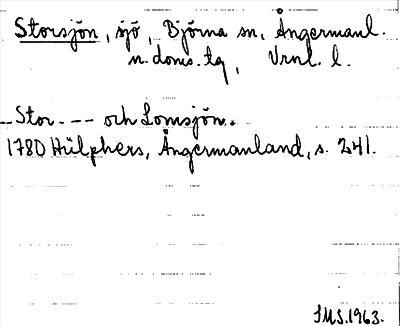 Storsjön, sjö, Björna sn, Ångermanl.
n. doms. tg, Vrnl. l.
Stor- - - och Lomsjön.
1780 Hülphers, Ångermanland, s. 241.
IMS.1963.